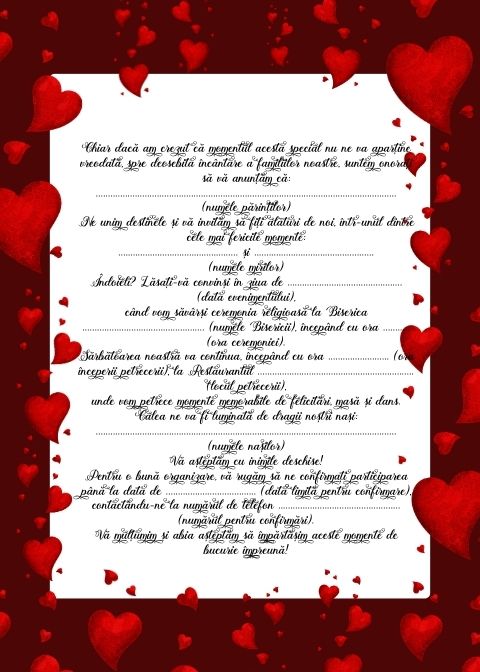 Chiar dacă am crezut că momentul acesta special nu ne va aparține
vreodată, spre deosebită încântare a familiilor noastre, suntem onorați
să vă anunțăm că:
................................................................
(numele părinților)
Ne unim destinele și vă invităm să fiți alături de noi, într-unul dintre
cele mai fericite momente:
.......................................... și ..........................................
(numele mirilor)
Îndoieli? Lăsați-vă convinși în ziua de ........................................
(data evenimentului),
când vom săvârși ceremonia religioasă la Biserica
.......................................... (numele Bisericii), începând cu ora ........
(ora ceremoniei).
Sărbătoarea noastră va continua, începând cu ora ..................... (ora
începerii petrecerii), la Restaurantul ................................................
(locul petrecerii),
unde vom petrece momente memorabile de felicitări, masă și dans.
Calea ne va fi luminată de dragii noștri nași:
................................................................
(numele nașilor)
Vă așteptăm cu inimile deschise!
Pentru o bună organizare, vă rugăm să ne confirmați participarea
până la data de ................................ (data limită pentru confirmare),
contactându-ne la numărul de telefon ..........................................
(numărul pentru confirmări).
Vă mulțumim și abia așteptăm să împărtășim aceste momente de
bucurie împreună!